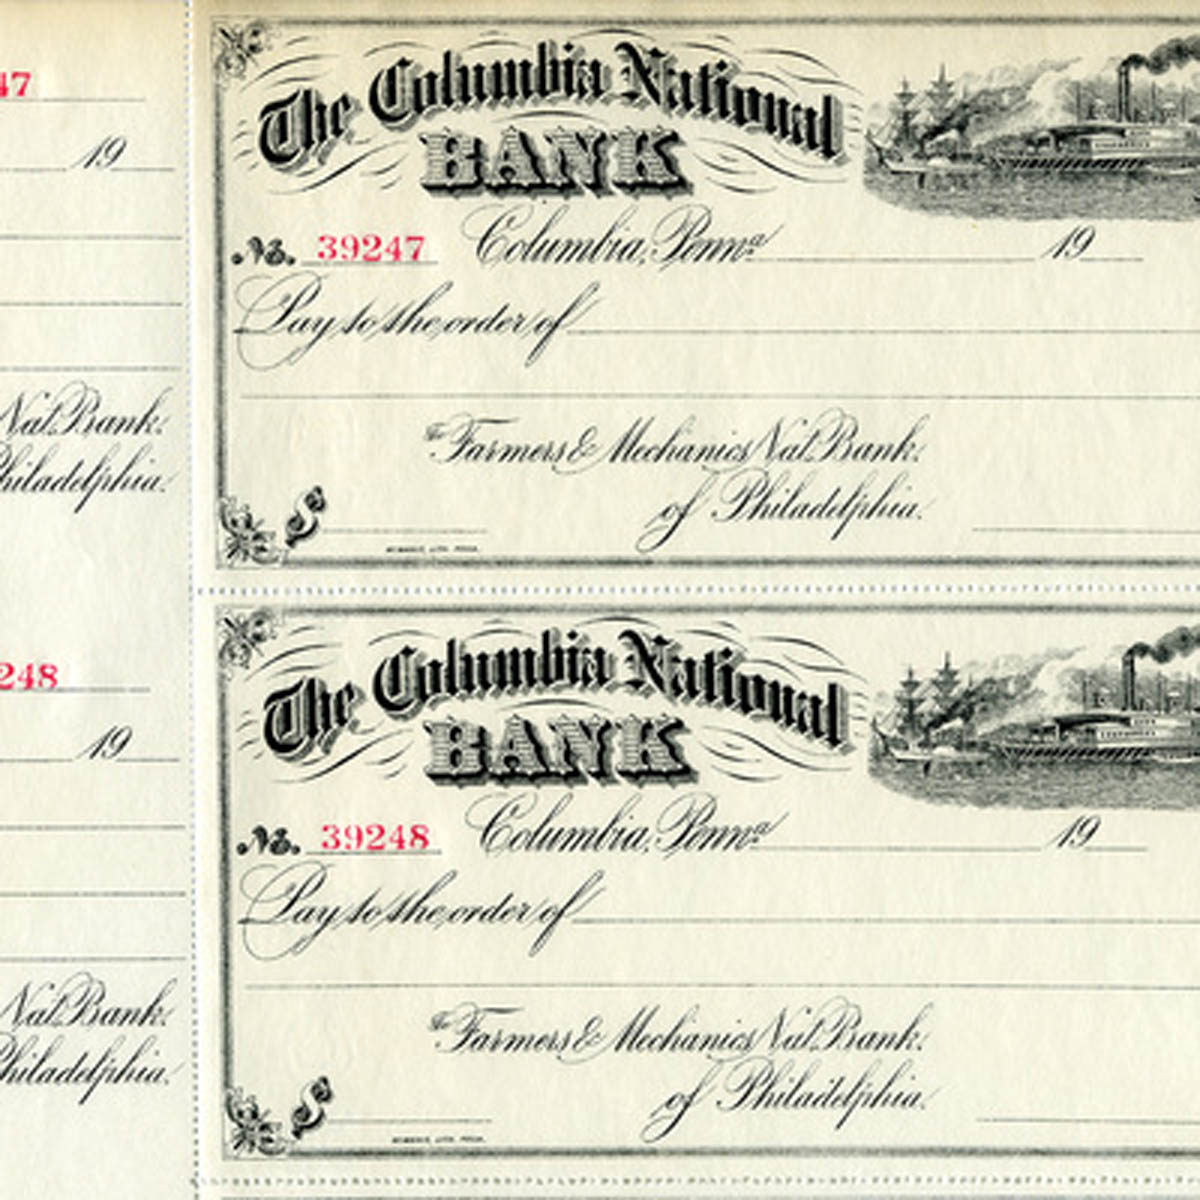 47
19
Nat. Bank.
Philadelphia.
The Columbia National
BANK
No. 39247 Columbia, Penna. 19
Pay to the order of
The Farmers & Mechanics Nat. Bank.
of Philadelphia.
$
248
19
Nat. Bank.
Philadelphia.
The Columbia National
BANK
No. 39248 Columbia, Penna. 19
Pay to the order of
The Farmers & Mechanics Nat. Bank.
of Philadelphia.
$